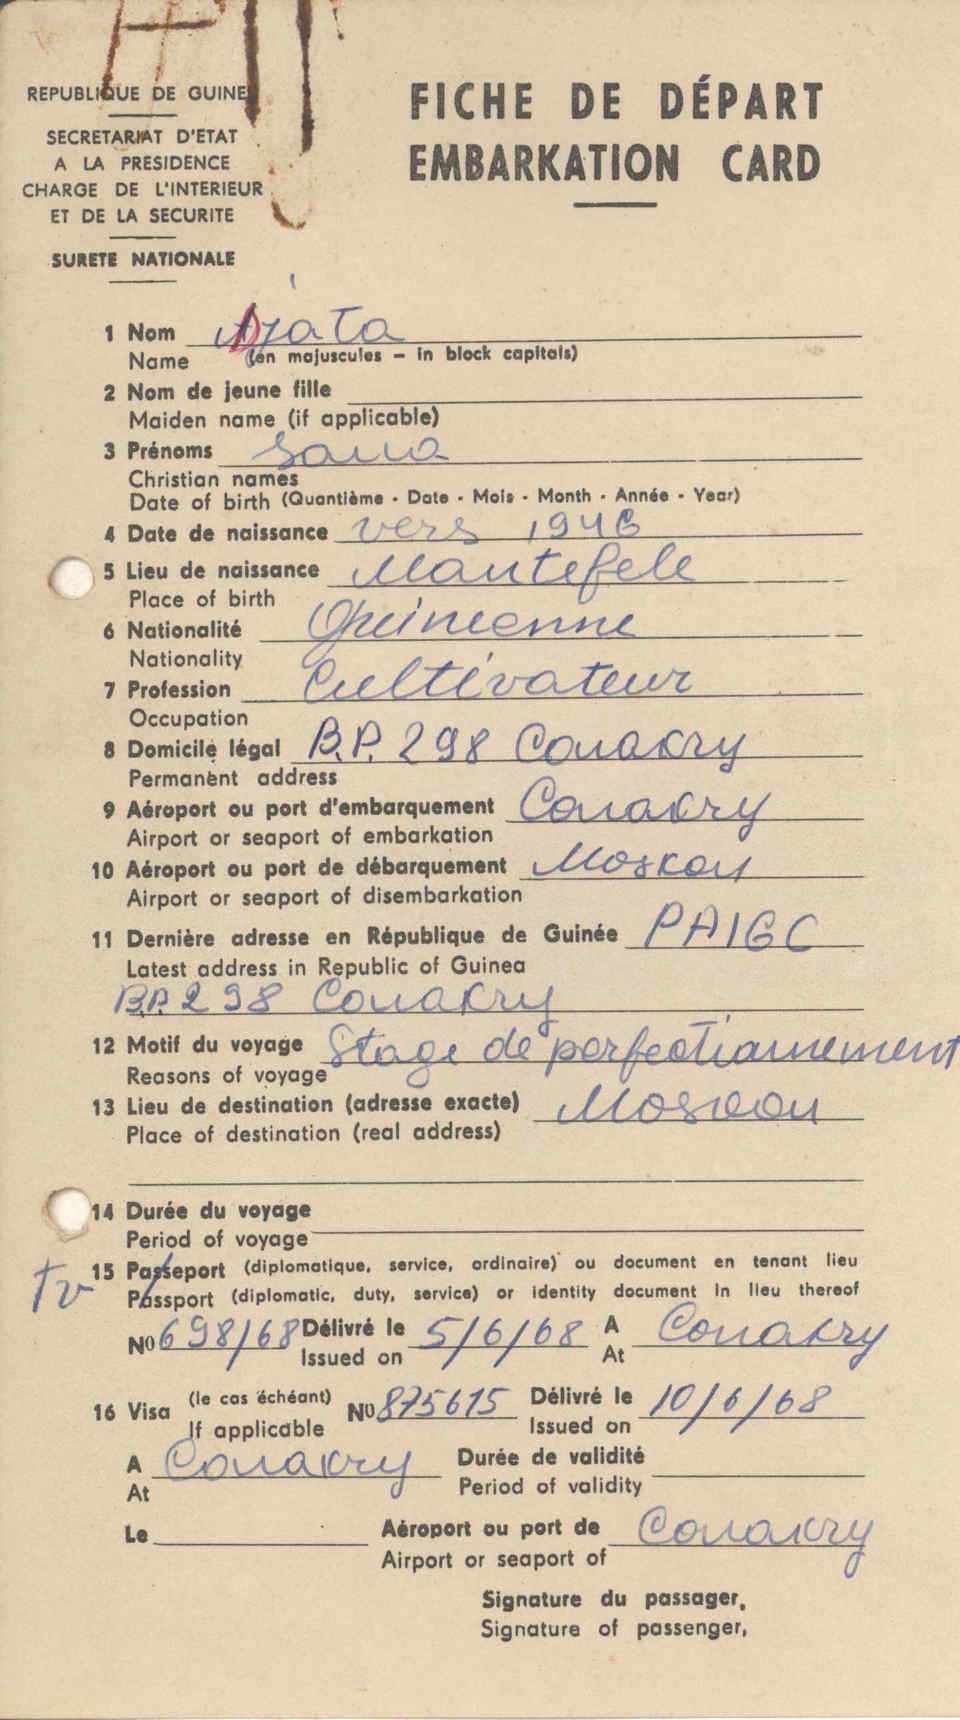 REPUBLIQUE DE GUINEE
SECRETARIAT D'ETAT
A LA PRESIDENCE
CHARGE DE L'INTERIEUR
ET DE LA SECURITE
SURETE NATIONALE
FICHE DE DÉPART
EMBARKATION CARD
1 Nom
Name (en majuscules – in block capitals)
2 Nom de jeune fille
Maiden name (if applicable)
3 Prénoms Sana
Christian names
Date of birth (Quantième - Date - Mois - Month - Année - Year)
4 Date de naissance vers 1946
5 Lieu de naissance Mantefele
Place of birth
6 Nationalité Guinéenne
Nationality
7 Profession Cultivateur
Occupation
8 Domicile légal B.P. 298 Conakry
Permanent address
9 Aéroport ou port d'embarquement Conakry
Airport or seaport of embarkation
10 Aéroport ou port de débarquement Moskou
Airport or seaport of disembarkation
11 Dernière adresse en République de Guinée PAIGC
Latest address in Republic of Guinea
B.P. 298 Conakry
12 Motif du voyage Stage de perfectiannement
Reasons of voyage
13 Lieu de destination (adresse exacte) Moscou
Place of destination (real address)
14 Durée du voyage
Period of voyage
15 Passeport (diplomatique, service, ordinaire) ou document en tenant lieu
Passport (diplomatic, duty, service) or identity document in lieu thereof
No 698/68 Délivré le 5/6/68 A Conakry
Issued on At
16 Visa (le cas échéant) No 875615 Délivré le 10/6/68
If applicable Issued on
A Conakry Durée de validité
At Period of validity
Le Aéroport ou port de Conakry
Airport or seaport of
Signature du passager,
Signature of passenger,